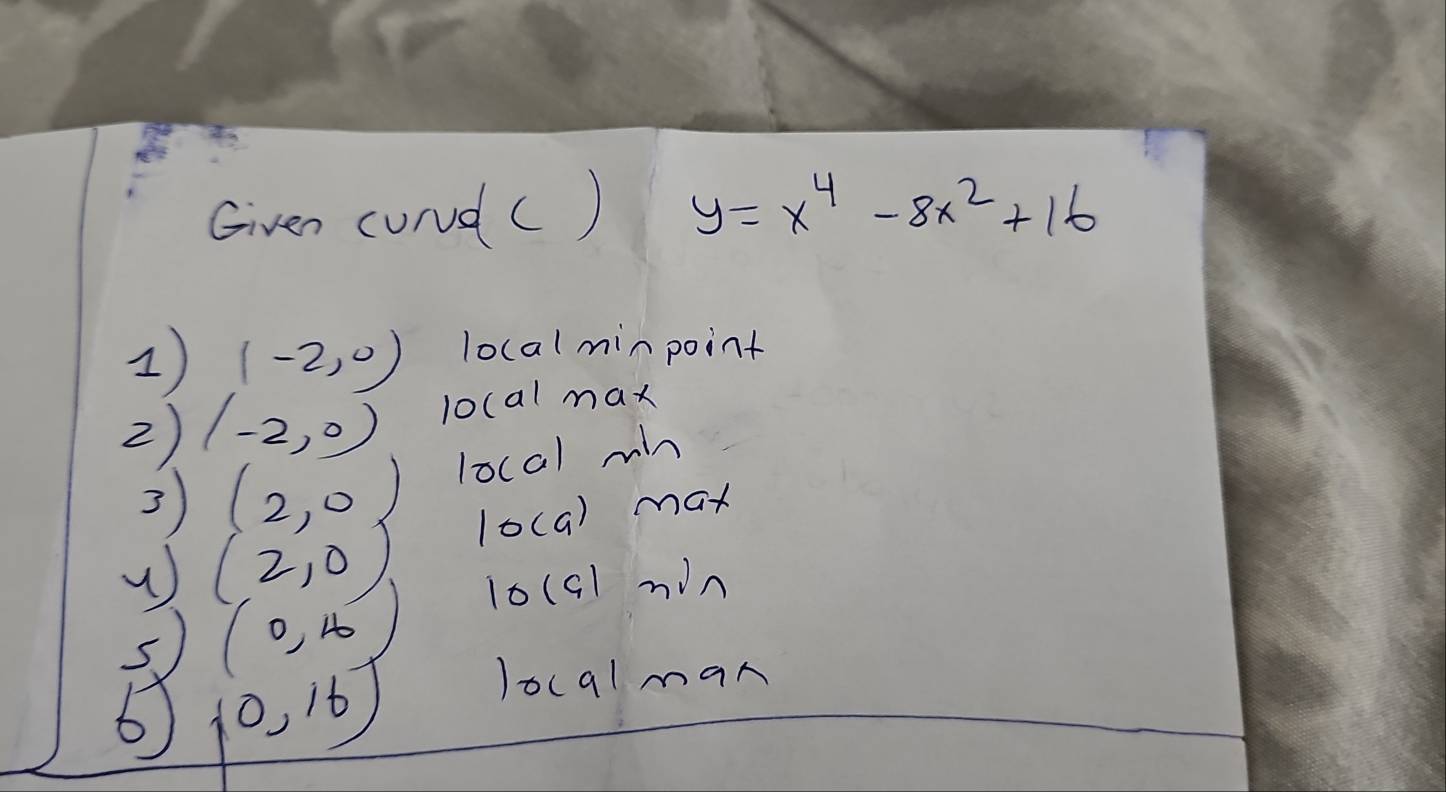 Given curve ( ) y = x⁴ - 8x² + 16
1) (-2,0) local min point
2) (-2,0) local max
3) (2,0) local min
4) (2,0) local max
5) (0,16) local min
6) (0,16) local max